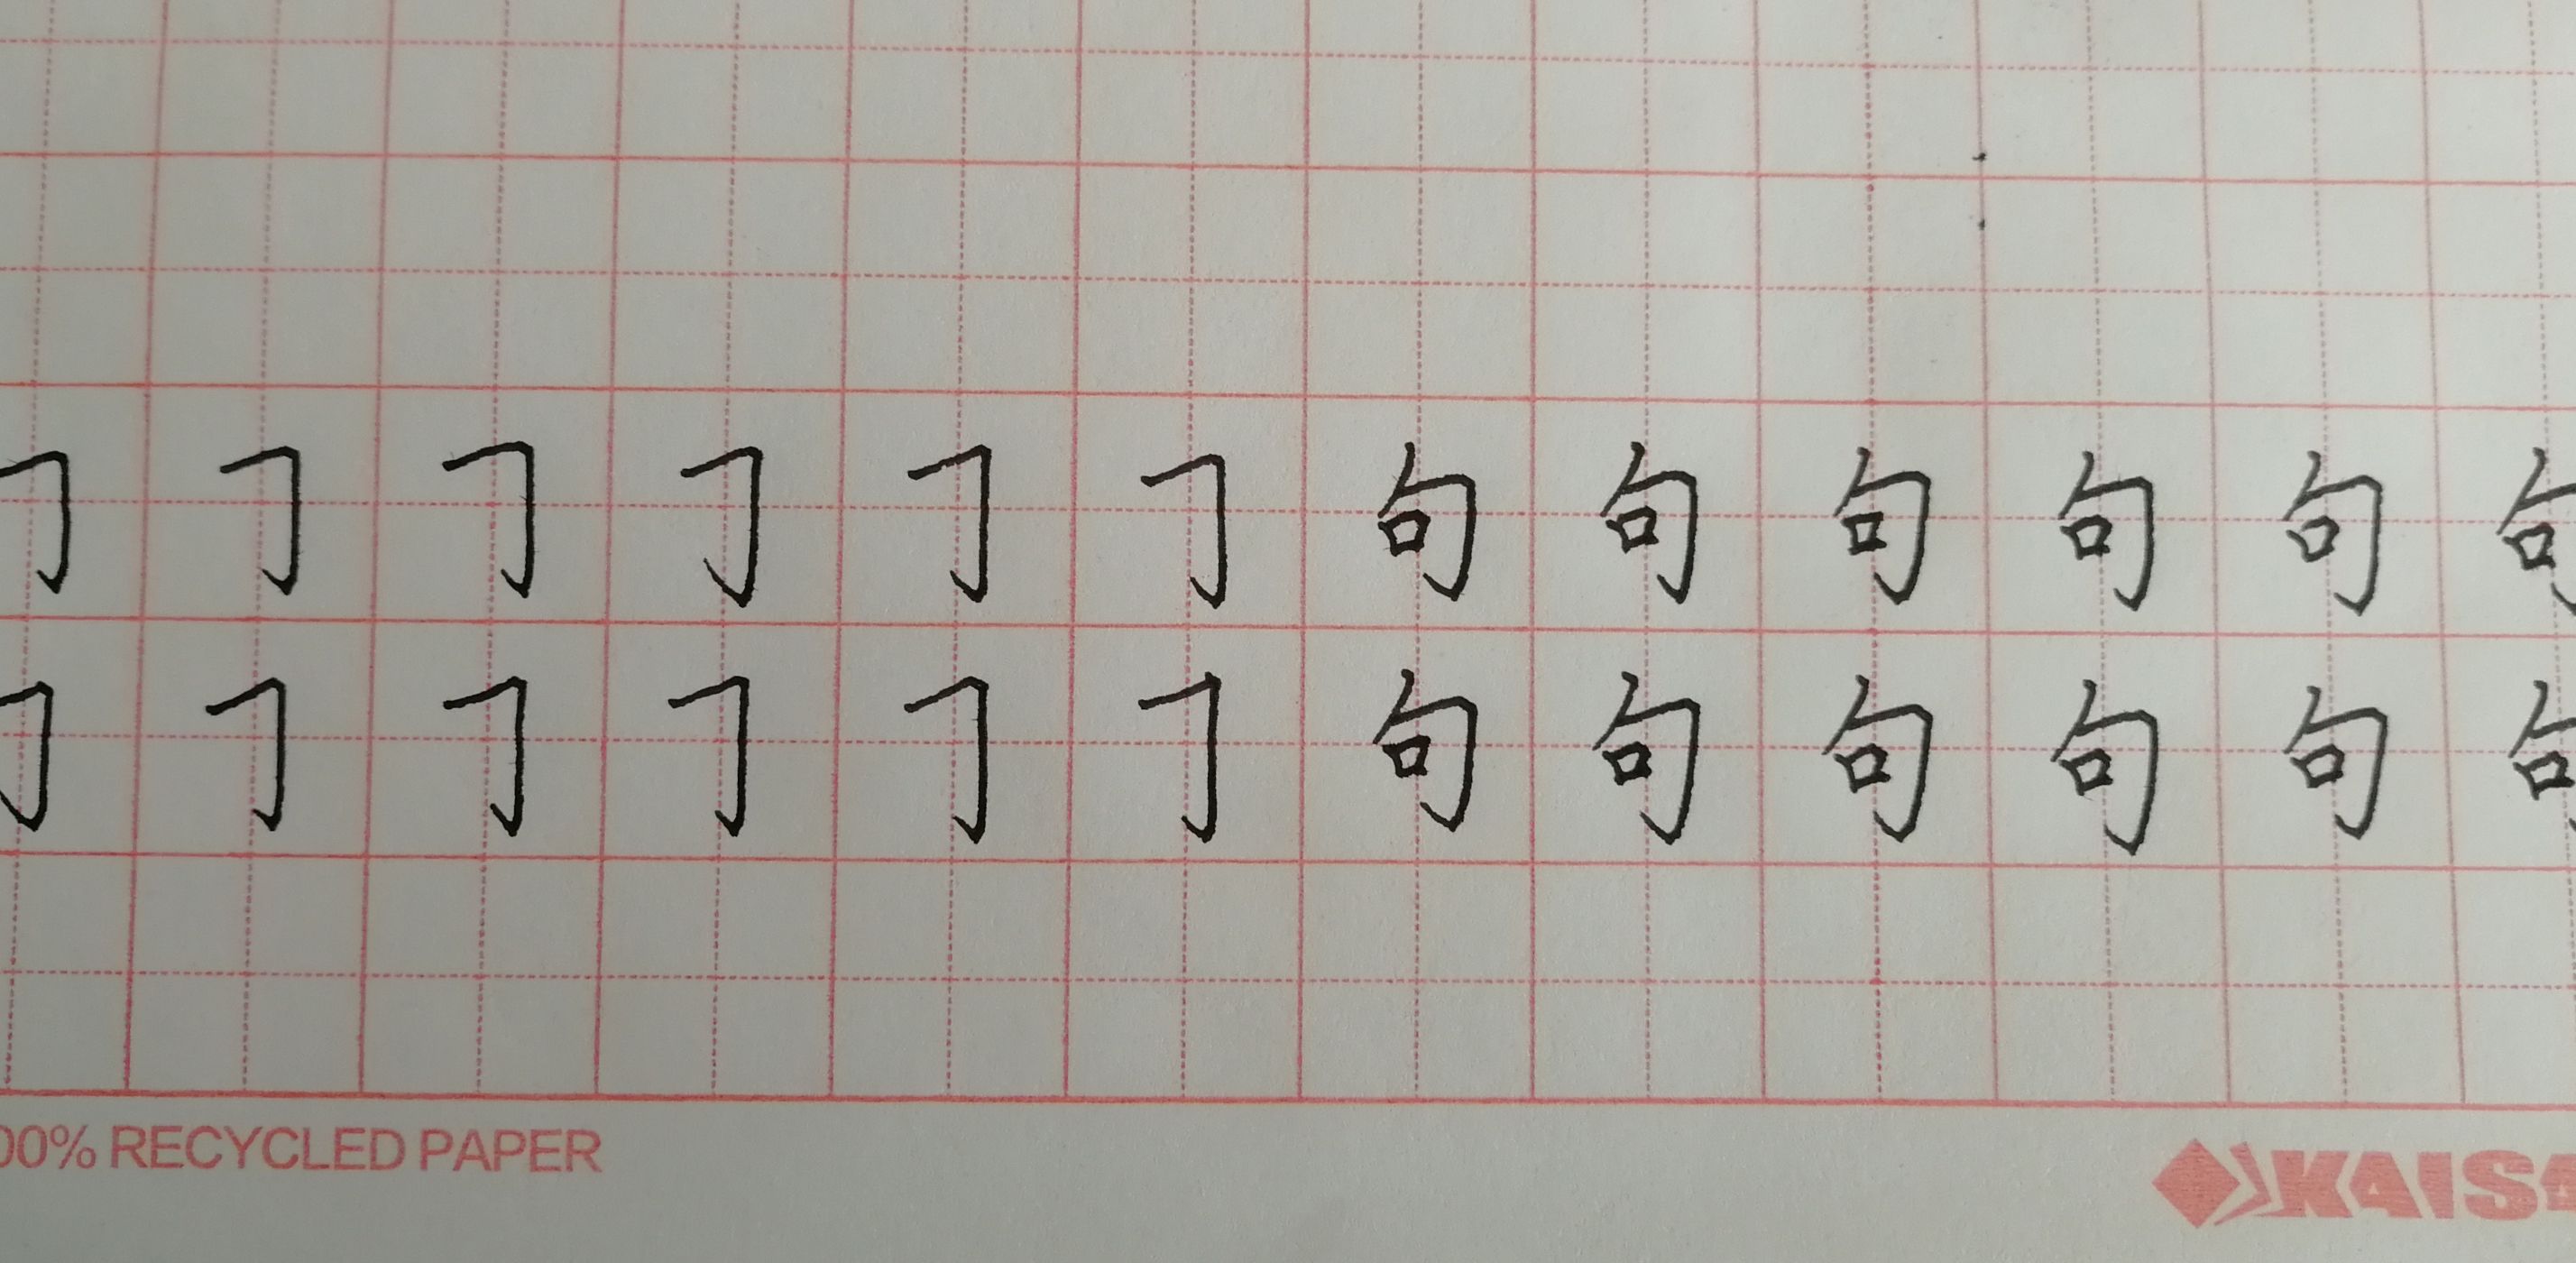 𠃌 𠃌 𠃌 𠃌 𠃌 𠃌 句 句 句 句 句 句
𠃌 𠃌 𠃌 𠃌 𠃌 𠃌 句 句 句 句 句 句
00% RECYCLED PAPER
KAIS